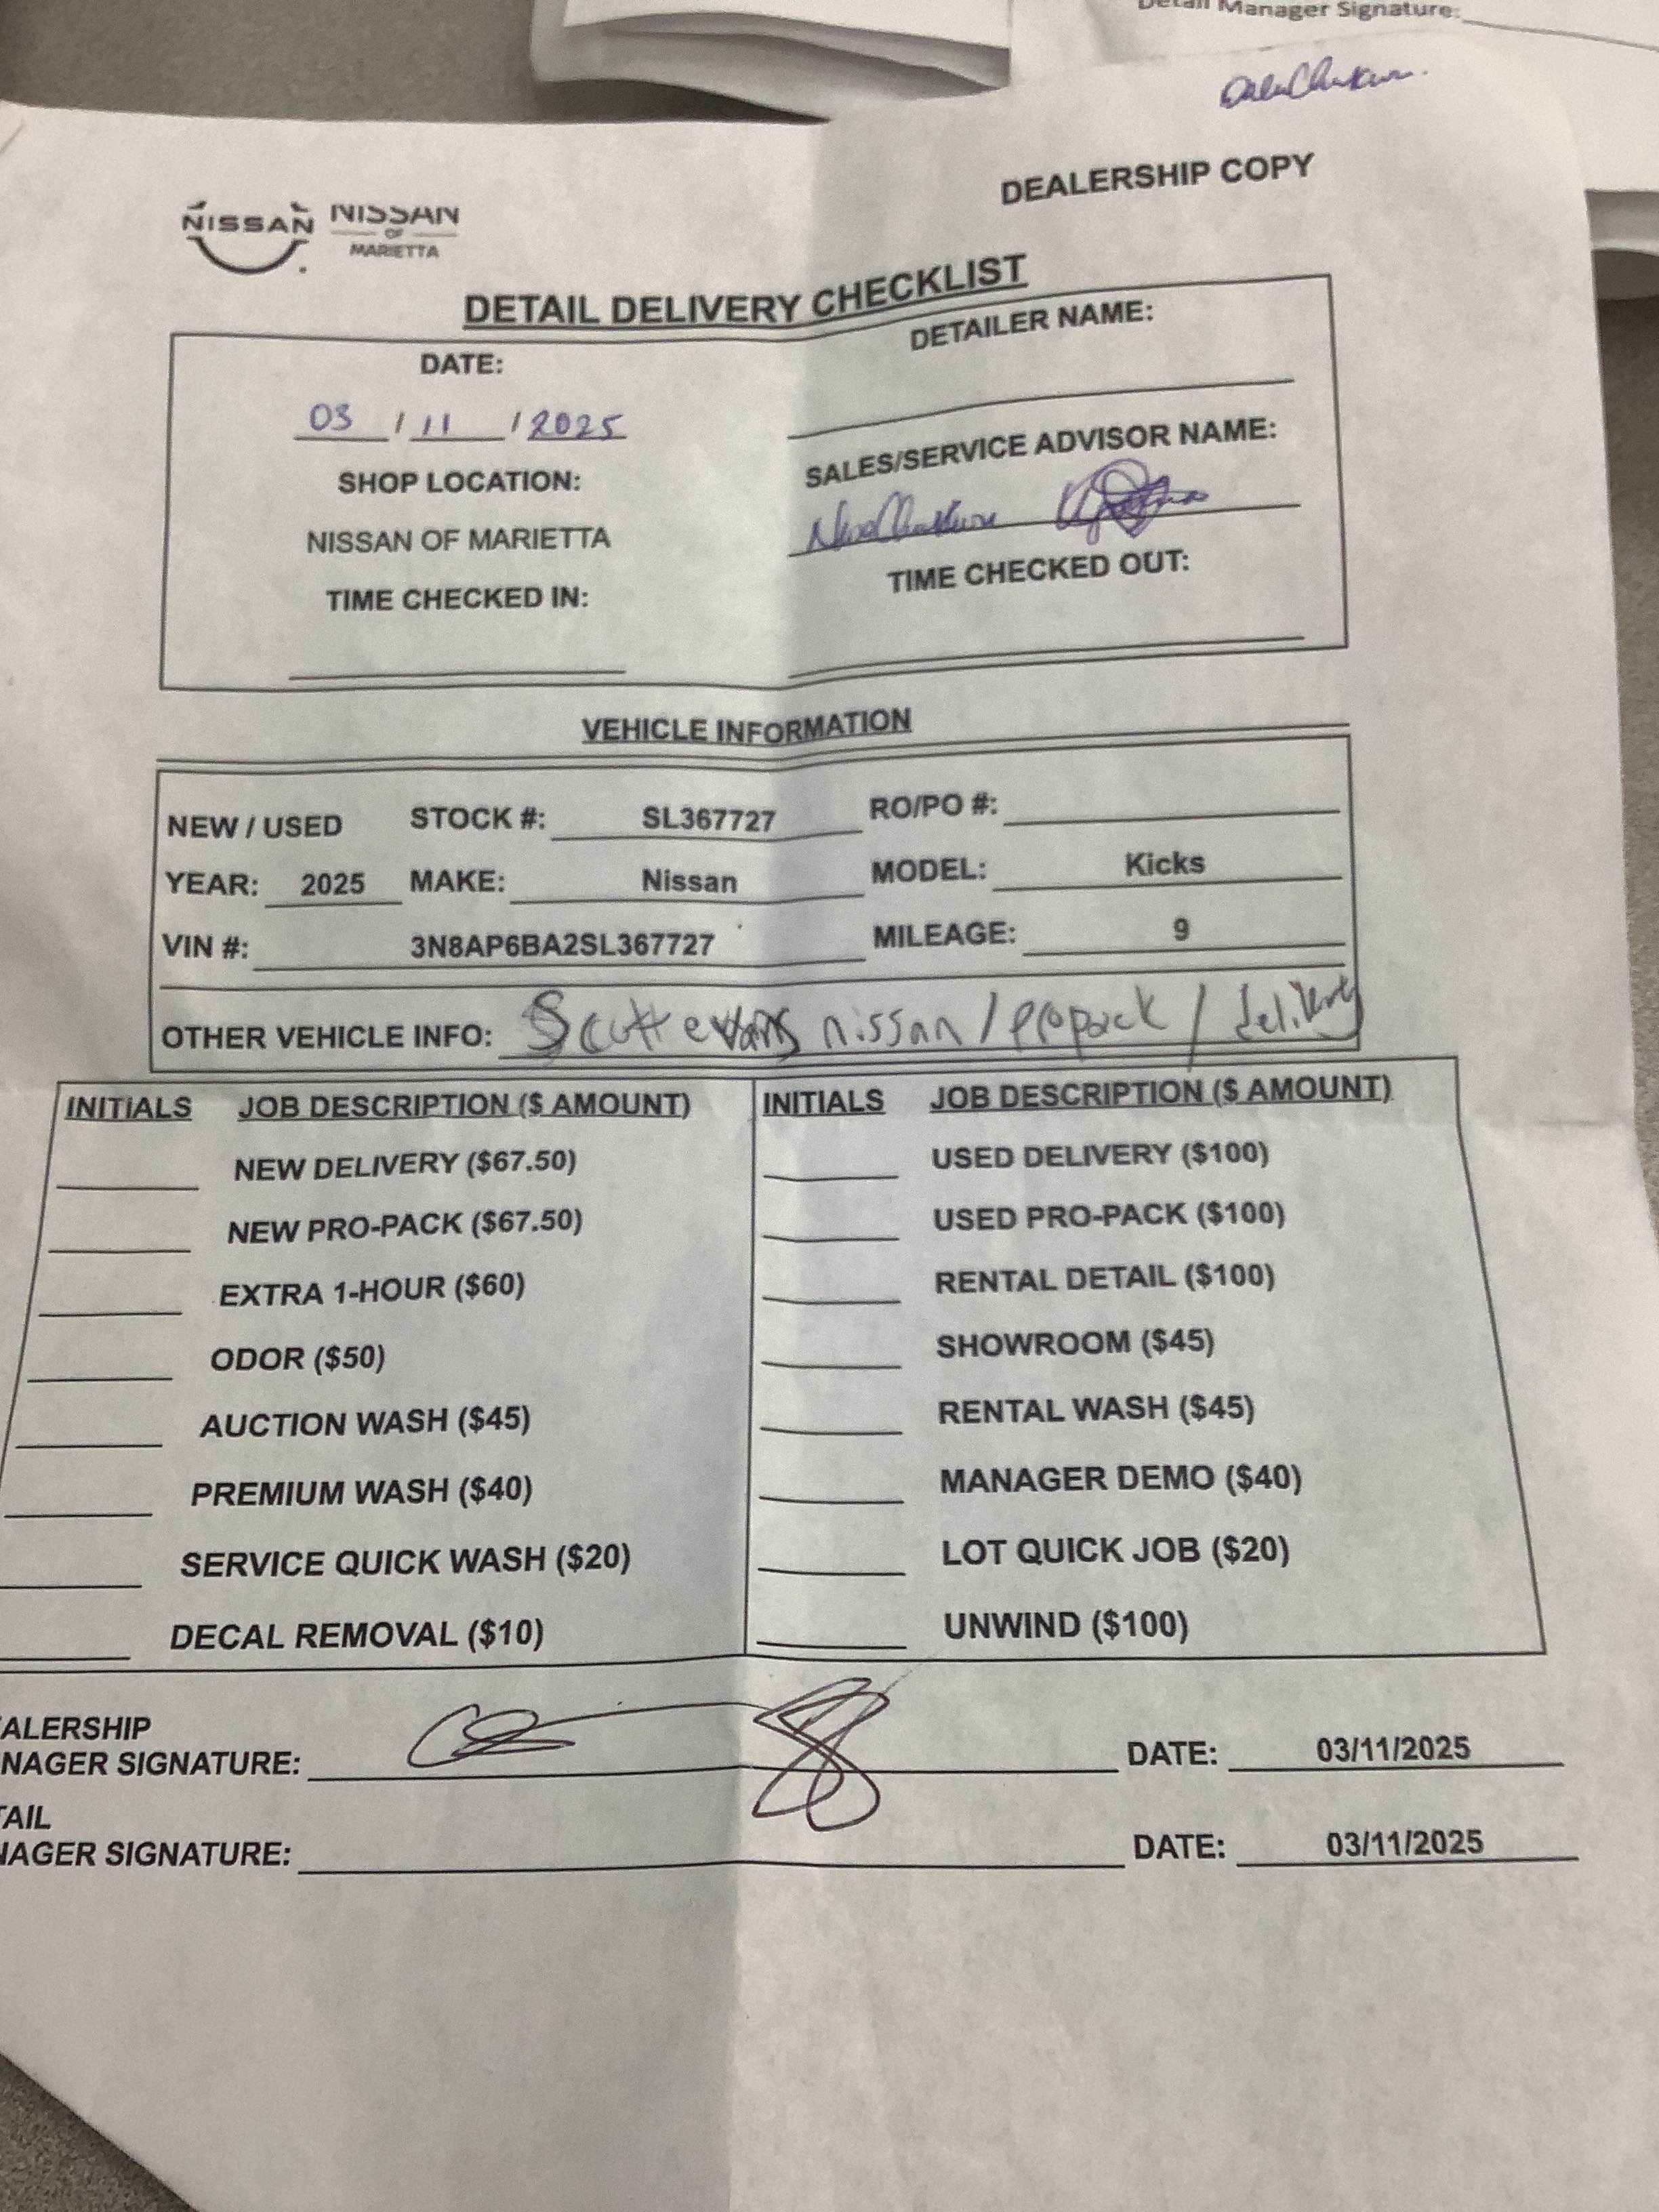 Detail Manager Signature:
DEALERSHIP COPY
NISSAN NISSAN
OF
MARIETTA
DETAIL DELIVERY CHECKLIST
DATE:
03 / 11 / 2025
SHOP LOCATION:
NISSAN OF MARIETTA
TIME CHECKED IN:
DETAILER NAME:
SALES/SERVICE ADVISOR NAME:
TIME CHECKED OUT:
VEHICLE INFORMATION
NEW / USED STOCK #: SL367727 RO/PO #:
YEAR: 2025 MAKE: Nissan MODEL: Kicks
VIN #: 3N8AP6BA2SL367727 MILEAGE: 9
OTHER VEHICLE INFO: Scott evans nissan / propack / delivery
INITIALS JOB DESCRIPTION ($ AMOUNT)
NEW DELIVERY ($67.50)
NEW PRO-PACK ($67.50)
EXTRA 1-HOUR ($60)
ODOR ($50)
AUCTION WASH ($45)
PREMIUM WASH ($40)
SERVICE QUICK WASH ($20)
DECAL REMOVAL ($10)
INITIALS JOB DESCRIPTION ($ AMOUNT)
USED DELIVERY ($100)
USED PRO-PACK ($100)
RENTAL DETAIL ($100)
SHOWROOM ($45)
RENTAL WASH ($45)
MANAGER DEMO ($40)
LOT QUICK JOB ($20)
UNWIND ($100)
ALERSHIP
NAGER SIGNATURE: DATE: 03/11/2025
AIL
NAGER SIGNATURE: DATE: 03/11/2025